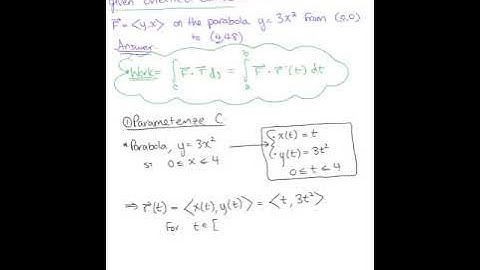 given oriented
F = <y,x> on the parabola y = 3x² from (0,0)
to (4,48)
Answer
* Work = ∫c F · T ds = ∫a^b F · r'(t) dt
① Parameterize C
* Parabola, y = 3x²
st 0 ≤ x ≤ 4
• x(t) = t
• y(t) = 3t²
0 ≤ t ≤ 4
⇒ r(t) = <x(t), y(t)> = <t, 3t²>
For t ∈ [